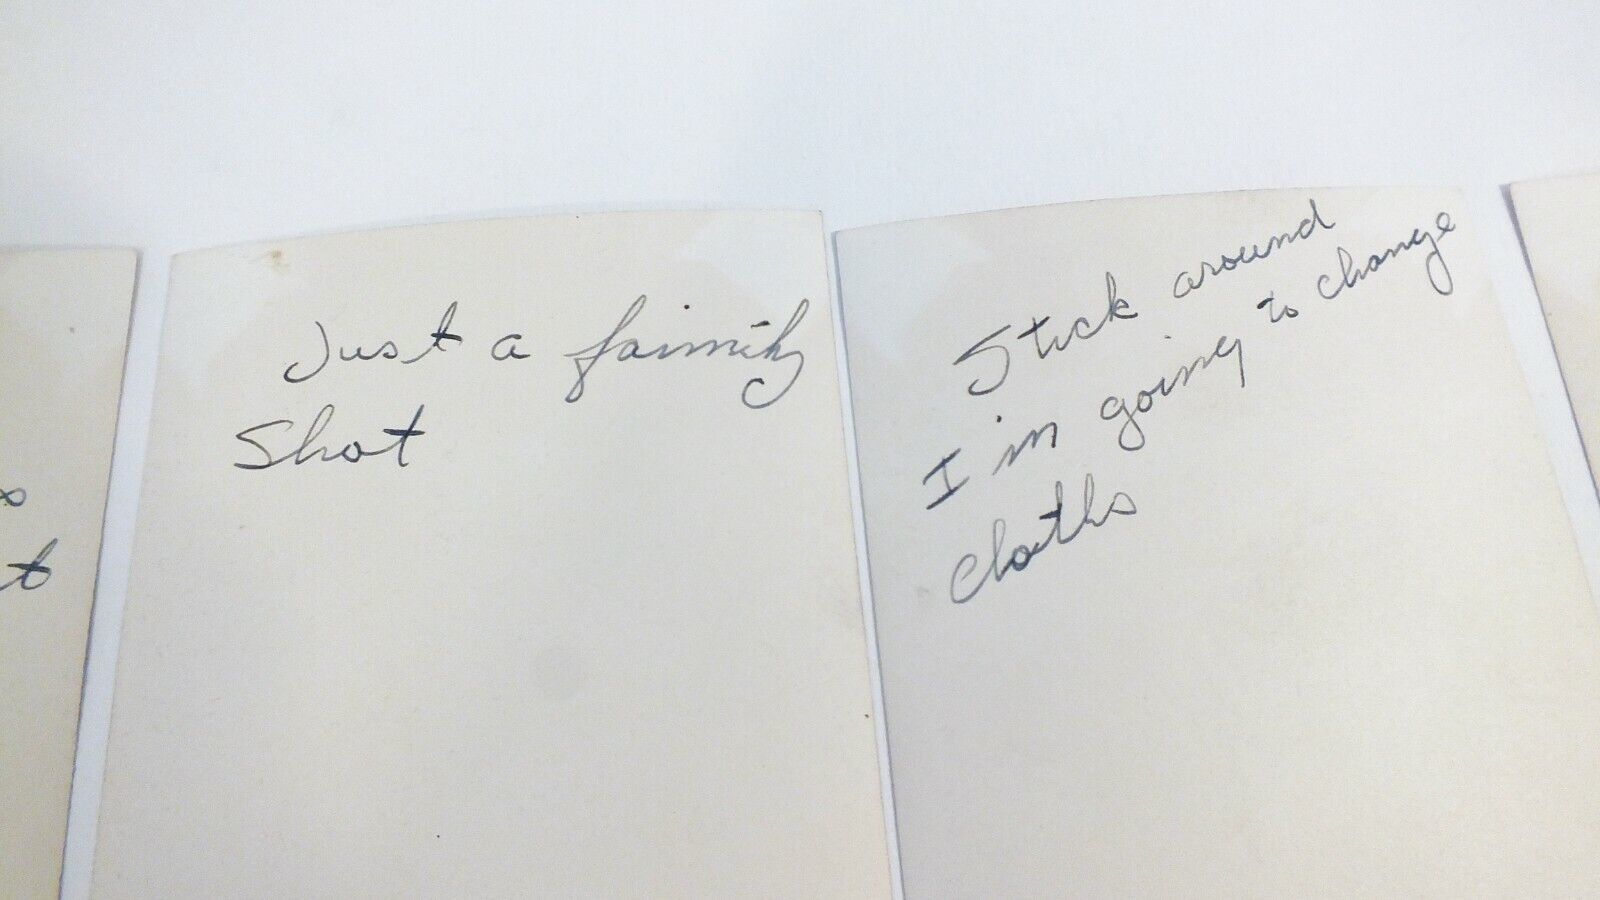 Just a faimily
Shot
Stick around
I'm going to change
cloths